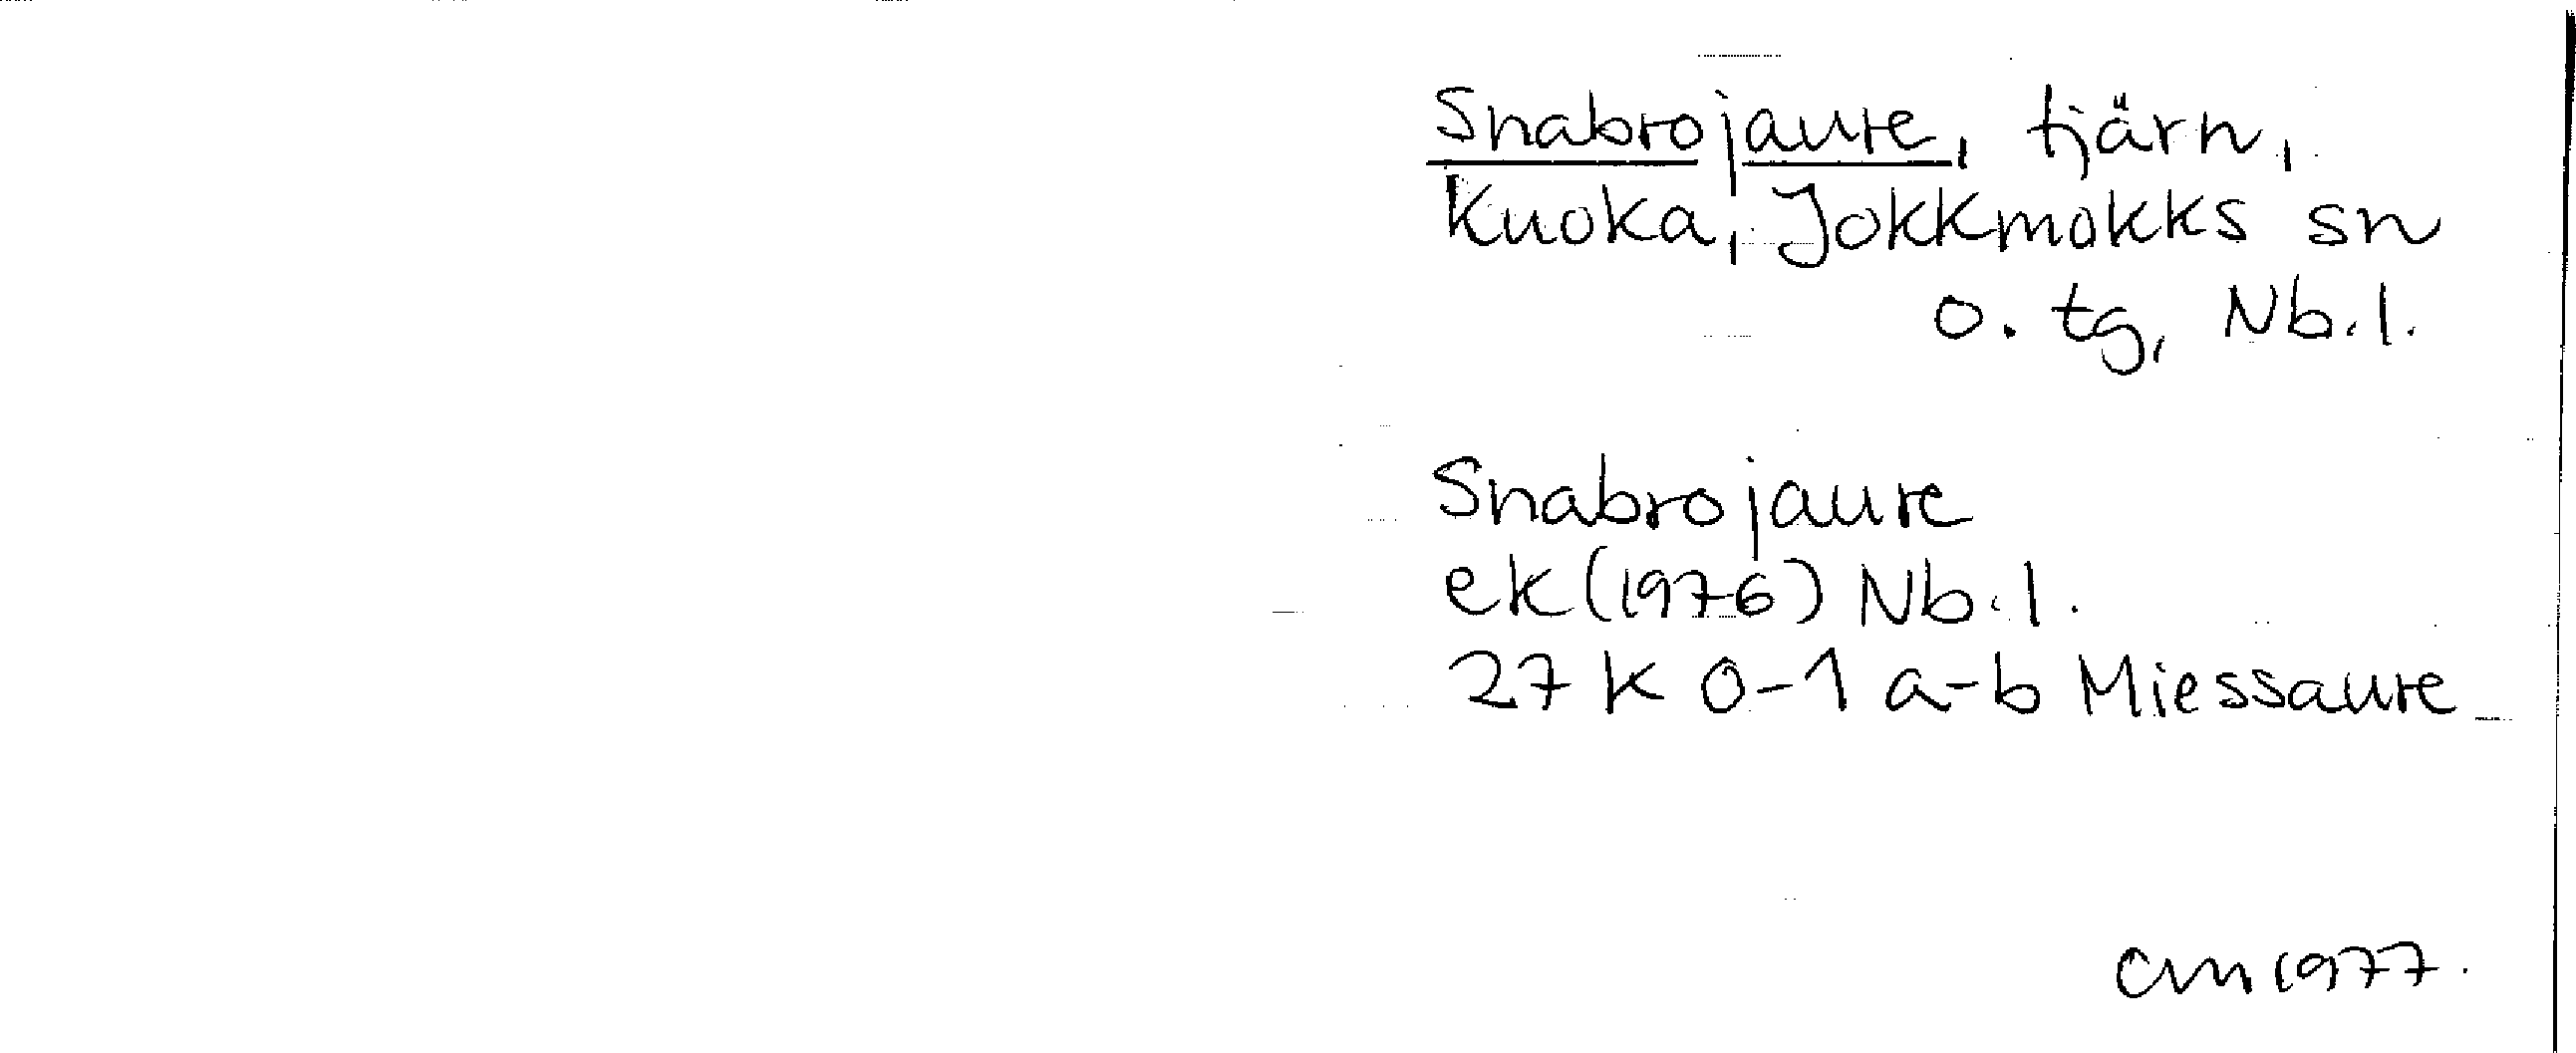 Snabrojaure, tjärn,
Kuoka, Jokkmokks sn
o. tg, Nb.l.
Snabrojaure
ek (1976) Nb.l.
27 K 0-1 a-b Miessaure
CM 1977.